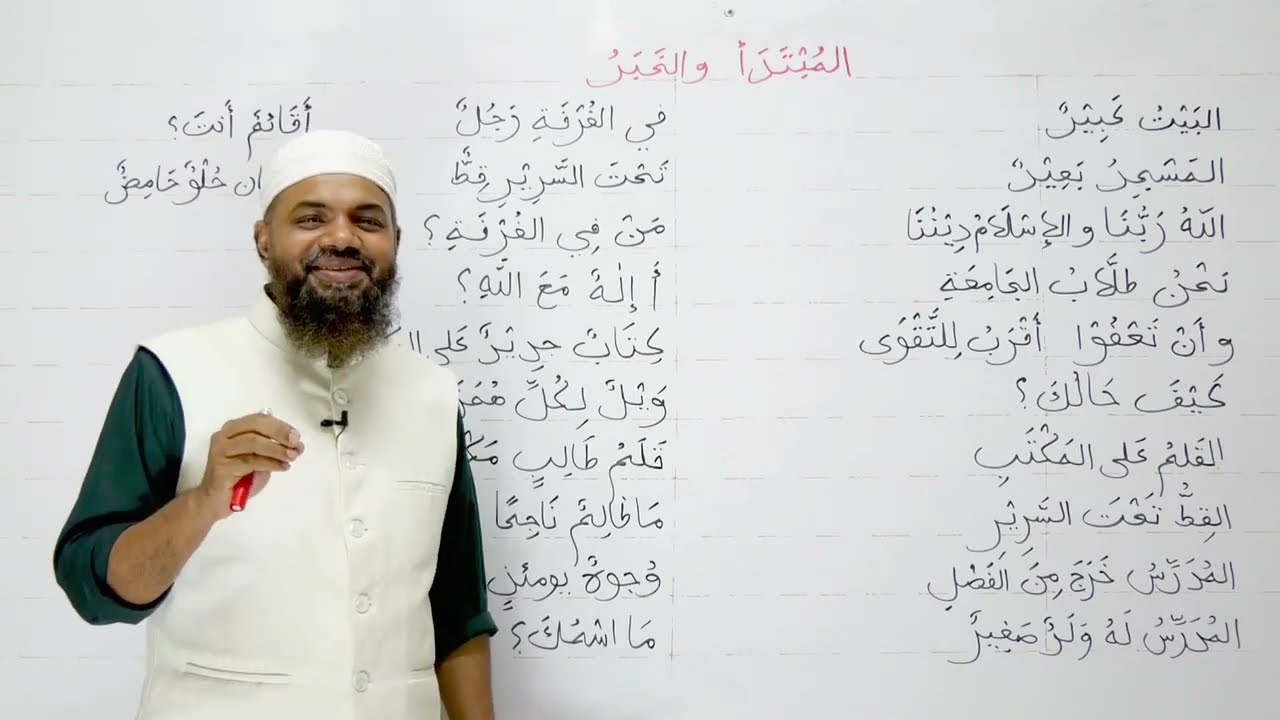 المُبْتَدَأ والخَبَرُ
البَيْتُ كَبِيْرٌ
المَسْجِدُ بَعِيْدٌ
اللهُ رَبُّنَا والإسْلَامُ دِيْنُنَا
نَحْنُ طلَّابُ الجَامِعَةِ
وأَنْ تَعْفُوْا أَقْرَبُ لِلتَّقْوَى
كَيْفَ حَالُكَ؟
القَلَمُ عَلى المَكْتَبِ
القِطُّ تَحْتَ السَّرِيْرِ
المُدَرِّسُ خَرَجَ مِنَ الفَصْلِ
المُدَرِّسُ لَهُ وَلَدٌ صَغِيرٌ
في الغُرْفَةِ رَجُلٌ
تَحْتَ السَّرِيْرِ قِطٌّ
مَنْ فِي الغُرْفَةِ؟
أَ إِلٰهٌ مَعَ اللَّهِ؟
كِتَابٌ جدِيْدٌ عَلى
وَيْلٌ لِكُلِّ
قَلَمُ طَالِبٍ
مَا طَالِبٌ نَاجِحًا
وُجوهٌ يومئذٍ
مَا اسْمُكَ؟
أَقَائمٌ أَنتَ؟
حُلْوٌ حَامِضٌ